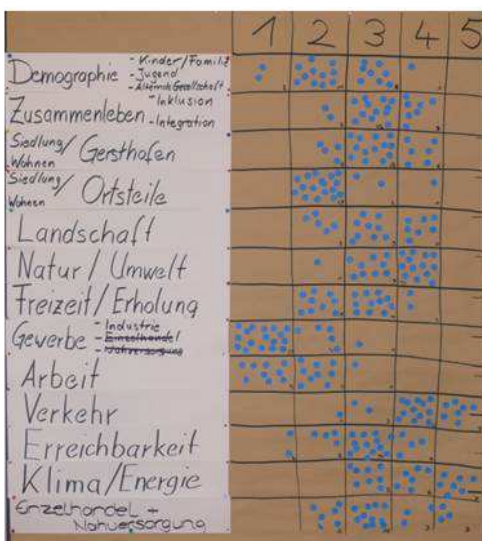 1 2 3 4 5
Demographie - Kinder/Familie
- Jugend
- Alternde Gesellschaft
Zusammenleben - Inklusion
- Integration
Siedlung/Wohnen Gersthofen
Siedlung/Wohnen Ortsteile
Landschaft
Natur/Umwelt
Freizeit/Erholung
Gewerbe - Industrie
- Einzelhandel
- Nahversorgung
Arbeit
Verkehr
Erreichbarkeit
Klima/Energie
Einzelhandel +
Nahversorgung